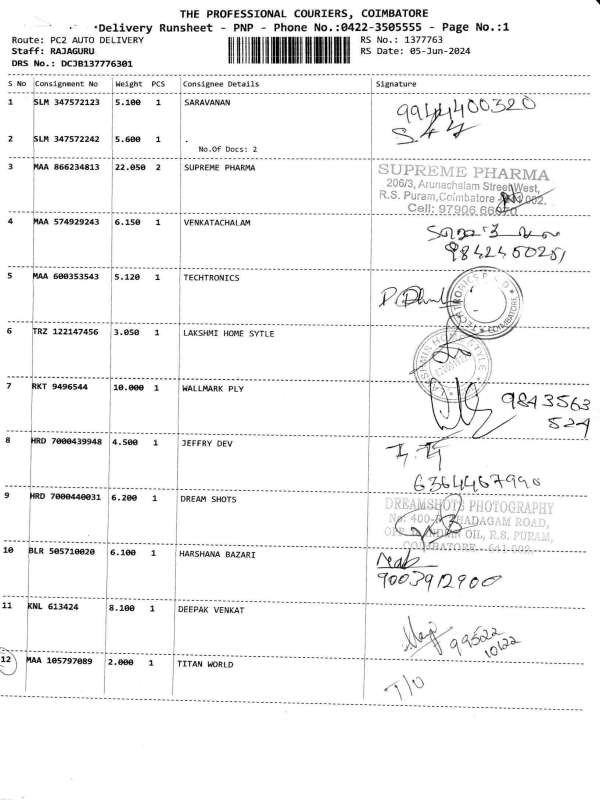 THE PROFESSIONAL COURIERS, COIMBATORE
Delivery Runsheet - PNP - Phone No.:0422-3505555 - Page No.:1
Route: PC2 AUTO DELIVERY RS No.: 1377763
Staff: RAJAGURU RS Date: 05-Jun-2024
DRS No.: DCJB137776301
S No Consignment No Weight PCS Consignee Details Signature
1 SLM 347572123 5.100 1 SARAVANAN 9944400320
2 SLM 347572242 5.600 1 .
No.Of Docs: 2
3 MAA 866234813 22.050 2 SUPREME PHARMA SUPREME PHARMA
206/3, Arunachalam Street West,
R.S. Puram, Coimbatore 002.
Cell: 97906
4 MAA 574929243 6.150 1 VENKATACHALAM
9842450251
5 MAA 600353543 5.120 1 TECHTRONICS
COIMBATORE
6 TRZ 122147456 3.050 1 LAKSHMI HOME SYTLE
7 RKT 9496544 10.000 1 WALLMARK PLY 9843563
524
8 HRD 7000439948 4.500 1 JEFFRY DEV
6364467990
9 HRD 7000440031 6.200 1 DREAM SHOTS DREAMSHOTS PHOTOGRAPHY
No: 400- THADAGAM ROAD,
OPP. OIL, R.S. PURAM,
COIMBATORE - 641 002.
10 BLR 505710020 6.100 1 HARSHANA BAZARI
9003912900
11 KNL 613424 8.100 1 DEEPAK VENKAT
99522
10622
12 MAA 105797089 2.000 1 TITAN WORLD T/O